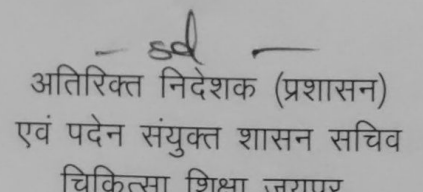 - sd -
अतिरिक्त निदेशक (प्रशासन)
एवं पदेन संयुक्त शासन सचिव
चिकित्सा शिक्षा जयपुर